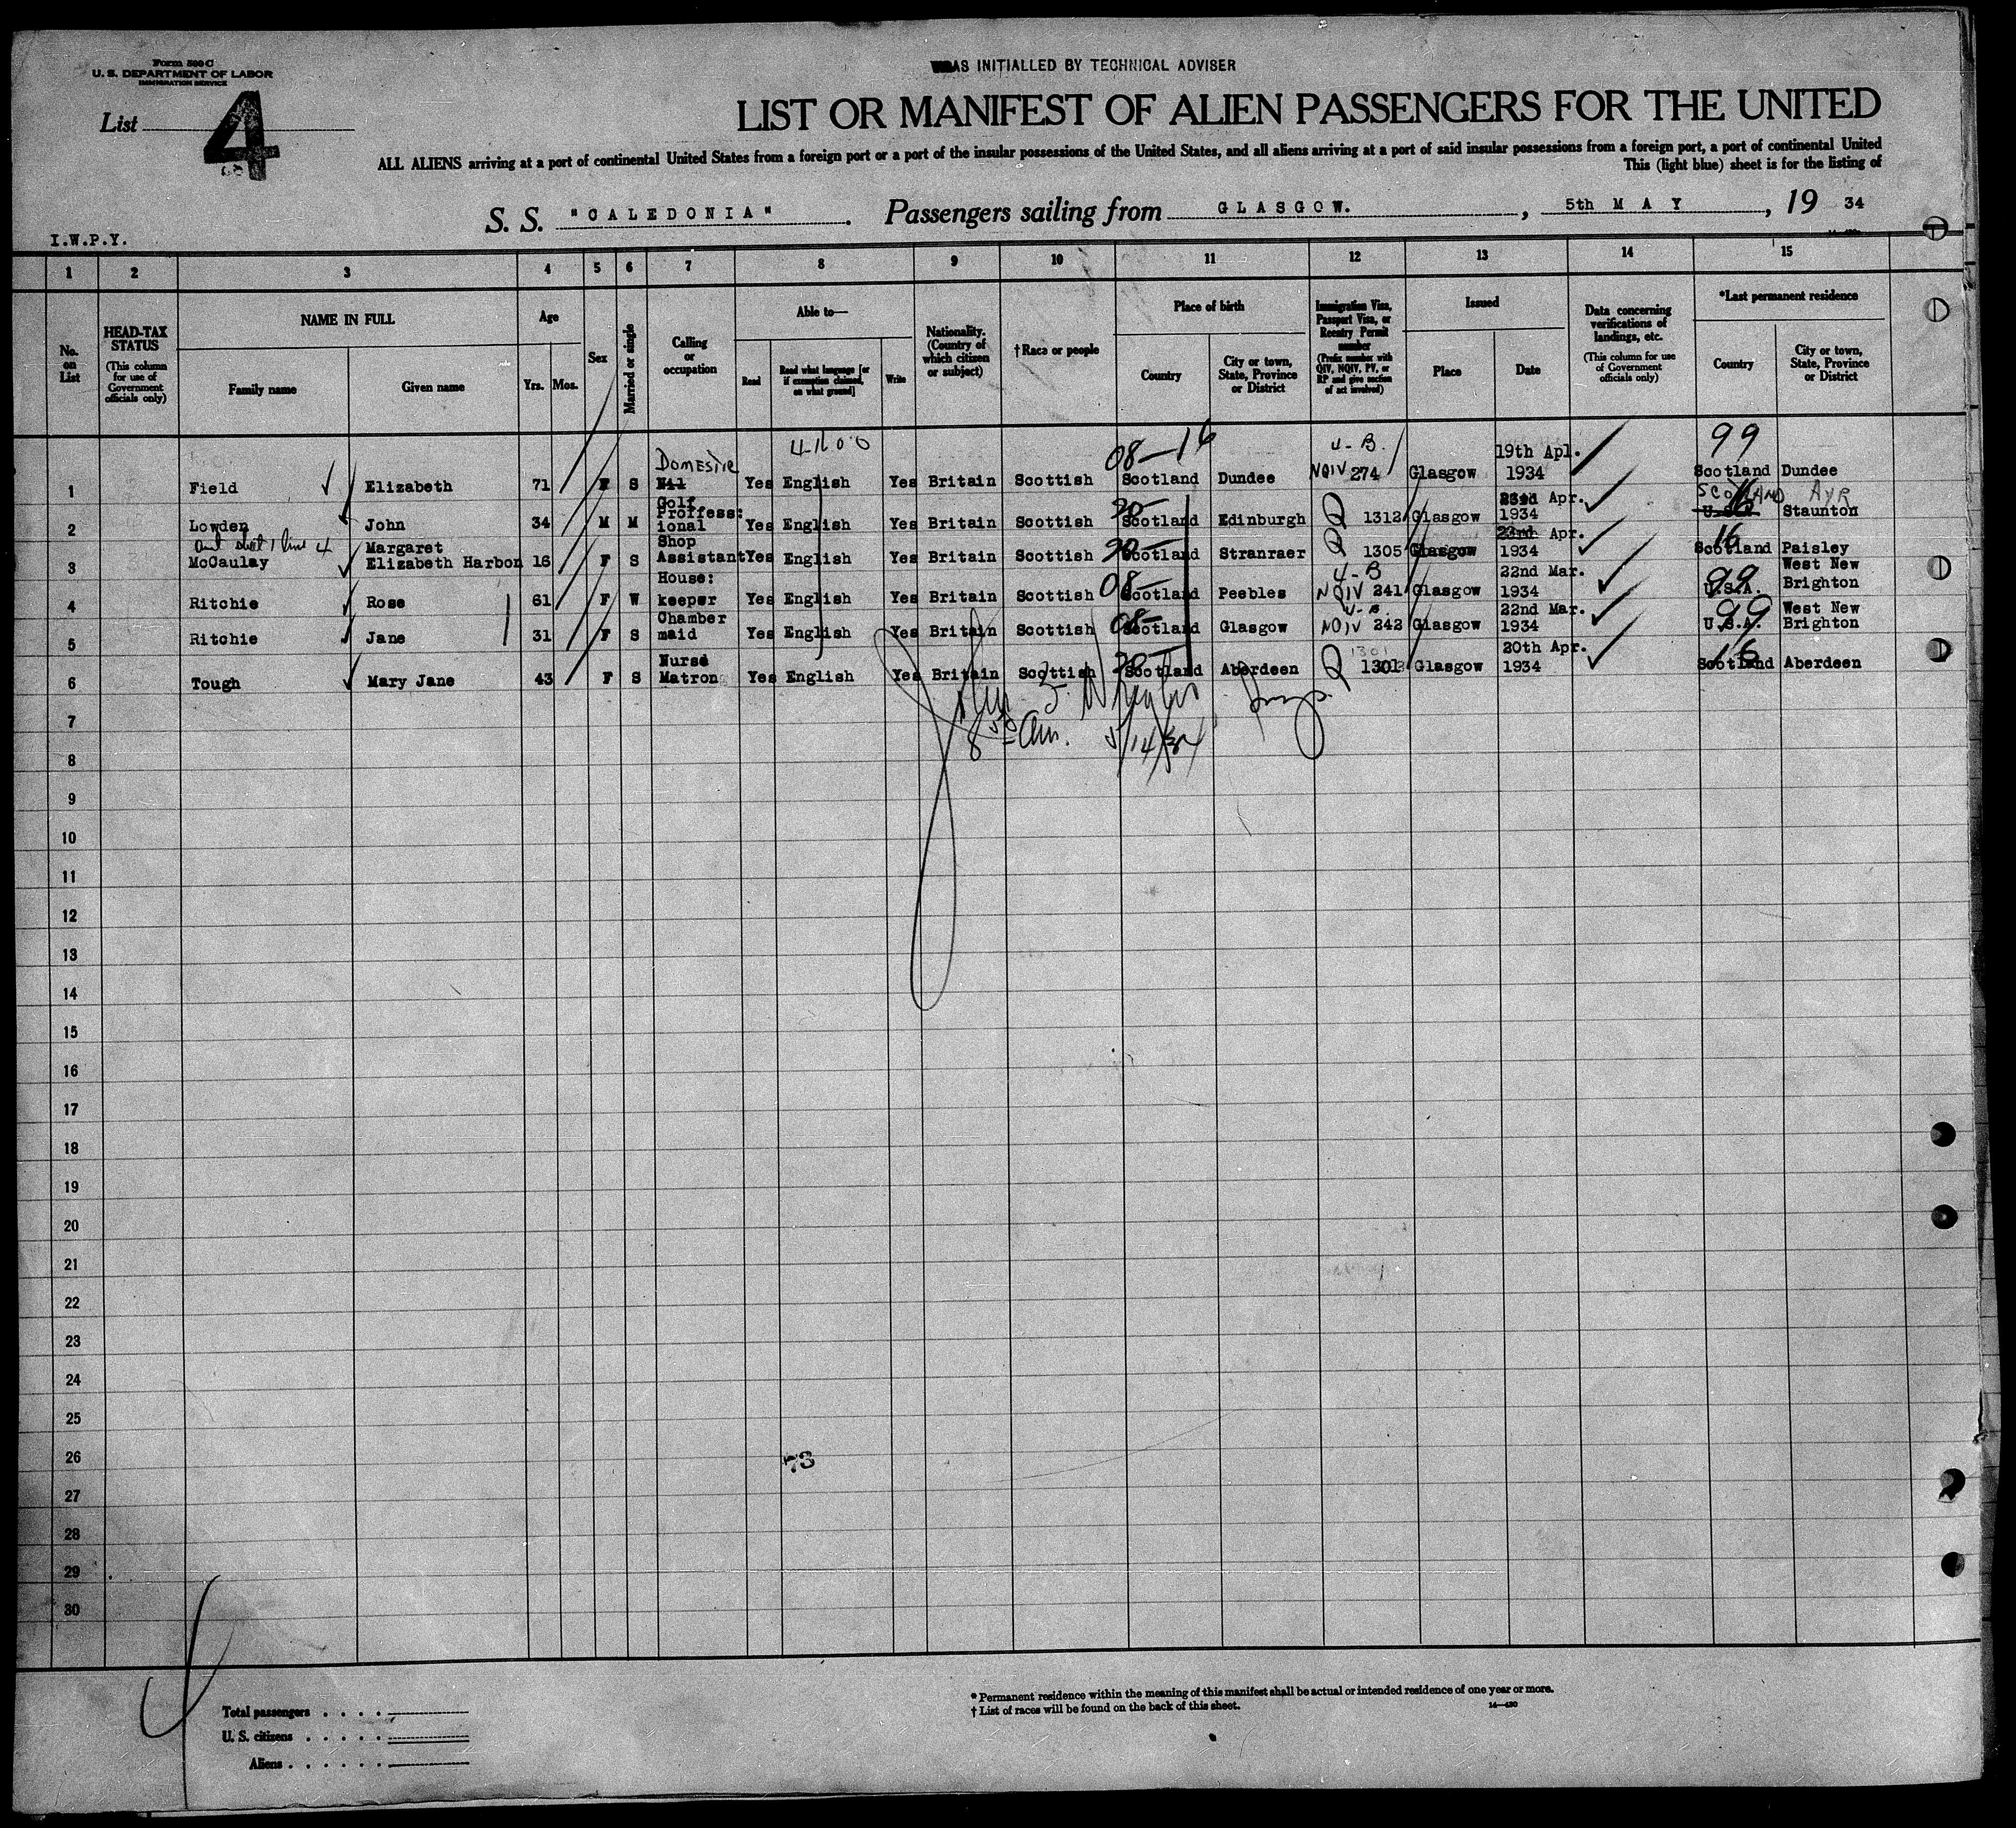 Form 500 C
U. S. DEPARTMENT OF LABOR
IMMIGRATION SERVICE
AS INITIALLED BY TECHNICAL ADVISER
List 4
LIST OR MANIFEST OF ALIEN PASSENGERS FOR THE UNITED
ALL ALIENS arriving at a port of continental United States from a foreign port or a port of the insular possessions of the United States, and all aliens arriving at a port of said insular possessions from a foreign port, a port of continental United
This (light blue) sheet is for the listing of
S. S. "CALEDONIA". Passengers sailing from GLASGOW., 5th MAY, 19 34
I.W.P.Y.
1 2 3 4 5 6 7 8 9 10 11 12 13 14 15
No. on List
HEAD-TAX STATUS
(This column for use of Government officials only)
NAME IN FULL
Family name
Given name
Age
Yrs. Mos.
Sex
Married or single
Calling or occupation
Able to—
Read
Read what language [or if exemption claimed, on what ground]
Write
Nationality. (Country of which citizen or subject)
† Race or people
Place of birth
Country
City or town, State, Province or District
Immigration Visa, Passport Visa, or Reentry Permit number
(Prefix number with QIV, NQIV, PV, or RP and give section of act involved)
Issued
Place
Date
Data concerning verifications of landings, etc.
(This column for use of Government officials only)
*Last permanent residence
Country
City or town, State, Province or District
4-B 19th Apl. 99
1 Field Elizabeth 71 F S Domestic Nil Yes English Yes Britain Scottish 08-16 Scotland Dundee NQIV 274 Glasgow 1934 Scotland Dundee
2 Lowden John 34 M M Golf Proffess: ional Yes English Yes Britain Scottish Scotland Edinburgh Q 1312 Glasgow 23rd Apr. 1934 SCOTLAND AYR U.S.A. Staunton
and sheet 1 line 4
3 McCaulay Margaret Elizabeth Harbon 16 F S Shop Assistant Yes English Yes Britain Scottish Scotland Stranraer Q 1305 Glasgow 23rd Apr. 1934 16 Scotland Paisley
4 Ritchie Rose 61 F W House: keeper Yes English Yes Britain Scottish 08- Scotland Peebles 4-B NQIV 241 Glasgow 22nd Mar. 1934 99 U.S.A. West New Brighton
5 Ritchie Jane 31 F S Chamber maid Yes English Yes Britain Scottish 08- Scotland Glasgow 4-B. NQIV 242 Glasgow 22nd Mar. 1934 99 U.S.A. West New Brighton
6 Tough Mary Jane 43 F S Nurse Matron Yes English Yes Britain Scottish Scotland Aberdeen Q 1301 Glasgow 20th Apr. 1934 16 Scotland Aberdeen
7
8 8 50 Am. 5/14/34
9
10
11
12
13
14
15
16
17
18
19
20
21
22
23
24
25
26 73
27
28
29
30
* Permanent residence within the meaning of this manifest shall be actual or intended residence of one year or more.
† List of races will be found on the back of this sheet. 14—430
Total passengers
U. S. citizens
Aliens